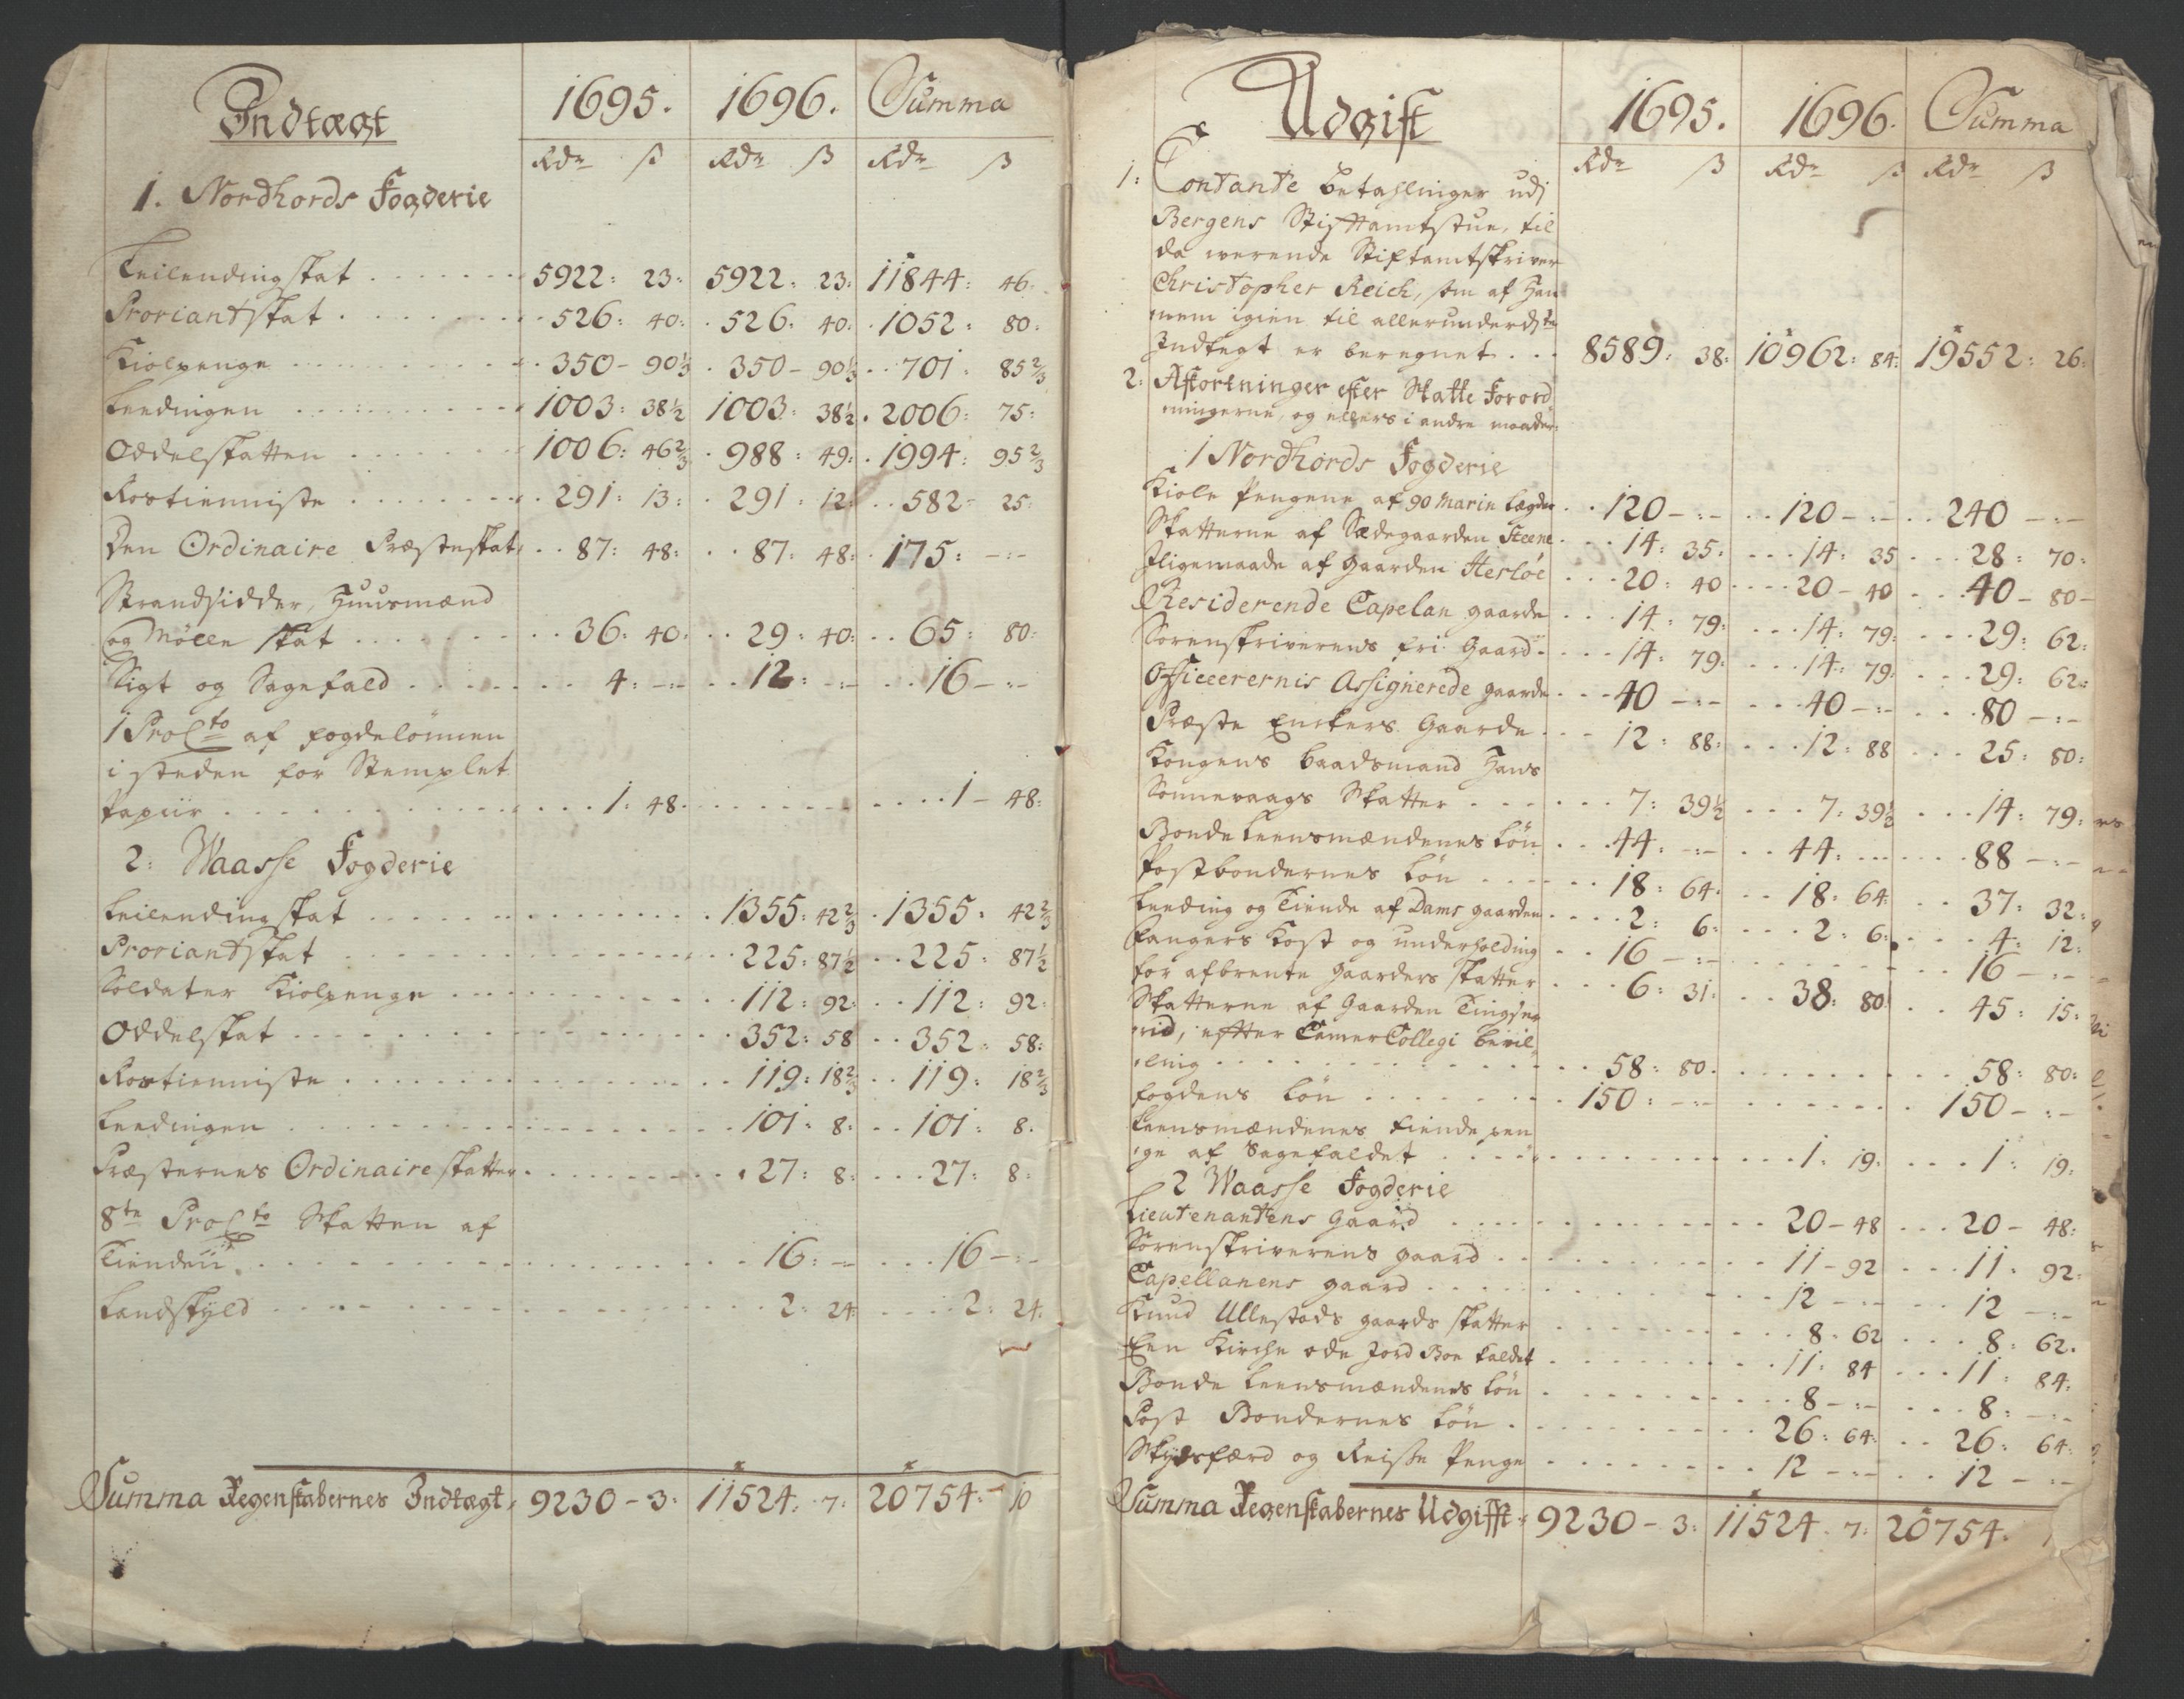 Indtægt 1695. 1696. Summa
Rdr ß Rdr ß Rdr ß
1. Nordhords Fogderie
Leilendingskat . . . 5922: 23: 5922: 23: 11844: 46:
Proviantskat . . . 526: 40: 526: 40: 1052: 80:
Kiolpenge . . . 350 - 90⅓ 350 - 90⅓ 701: 85⅔
Leedingen . . . 1003: 38½ 1003: 38½ 2006: 75:
Oddelskatten . . . 1006: 46⅔ 988: 49: 1994: 95⅔
Rostienniste . . . 291: 13: 291: 12: 582 - 25:
Den Ordinaire Præsteskat 87: 48: 87: 48: 175: -:-
Strandsidder, Huusmænd
og Mølle skat . . . 36: 40: 29: 40: 65: 80:
Sigt og Sagefald . . . 4: -:- 12: -:- 16 -:-
1 ProCto af fogdelønnen
i steden for Stemplet
Papiir . . . 1: 48. . . . 1 - 48:
2: Waasse Fogderie
Leilendingskat . . . 1355: 42⅔ 1355: 42⅔
Proviantskat . . . 225: 87½ 225: 87½
Soldater Kiolpenge . . . 112: 92: 112: 92:
Oddelskat . . . 352: 58 352: 58:
Rostienniste . . . 119: 18⅔ 119: 18⅔
Leedingen . . . 101: 8: 101: 8.
Præsternes Ordinaire skatter . . . 27: 8: 27: 8:
8te ProCto Skatten af
Tienden . . . 16: -:- 16 -:-
Landskyld . . . 2: 24: 2: 24:
Summa Regenskabernes Indtægt, 9230 - 3: 11524: 7: 20754: 10
Udgift 1695. 1696. Summa
Rdr ß Rdr ß Rdr ß
1: Contante betahlinger udj
Bergens Stiftamtstue, til
da werende Stiftamtskriver
Christopher Reich, som af Han
nem igien til allerunderdste
Indtegt er beregnet . . . 8589: 38: 10962: 84: 19552: 26:
2: Afkortninger efter Skatte Forord
ningerne, og ellers i andre maader:
1 Nordhords Fogderie
Kiole Pengene af 90 Marin Lægder . . 120 -:- 120 -:- 240 -:-
Skatterne af Sædegaarden Steene . . 14: 35: 14: 35 28: 70:
Iligemaade af gaarden Herløe . . . 20: 40 20 - 40 40 - 80 -
Residerende Capelan gaarde . . . 14: 79: 14: 79: 29: 62:
Sorenskriverens fri Gaard . . . 14: 79: 14: 79: 29: 62:
Officeerernis Assignerede gaarde . . . 40 -:- 40 -:- 80 -:-
Præste Enckers Gaarde . . . 12: 88: 12: 88 25: 80:
Kongens baadsmand Hans
Sonnevaags Skatter . . . 7: 39½ 7: 39½ 14: 79:
Bonde Leensmændenes Løn . . . 44: -:- 44: . . . 88 -:-
Postbondernes Løn . . . 18: 64: 18: 64: 37: 32:
Leeding og Tiende af Dams gaarden . . . 2: 6: 2: 6: 4: 12:
Fangers Kost og underholding . . 16 -:- . . . 16 -:-
for afbrente gaarders skatter . . . 6: 31: 38: 80: 45: 15:
Skatterne af Gaarden Tingsne
vid, efter CamerCollegi bevil
ling . . . 58: 80. . . . 58: 80:
Fogdens Løn . . . 150: -:- . . . 150 -:-
Leensmændenes tiende pen
ge af Sagefaldet . . . 1: 19: 1: 19:
2 Waasse Fogderie
Lieutenantens gaard . . . 20 - 48 20 - 48:
Sorenskriverens gaard . . . 11 - 92 11: 92:
Capellanens gaard . . . 12 -:- 12 -:-
Knud Ullestads gaards skatter . . . 8: 62 8: 62.
Een Kirche øde Jord Boe kaldet . . . 11: 84 11: 84:
Bonde Leensmændenes Løn . . . 8 -:- 8: -:-
Post Bondernes Løn . . . 26: 64: 26: 64:
Skydsfærd og Reisse Penge . . . 12 -:- 12 -:-
Summa Regenskabernes Udgifft: 9230 - 3: 11524: 7: 20754: